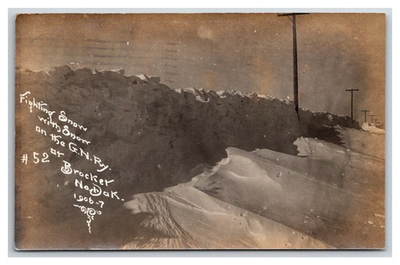 Fighting Snow
with Snow
on the G.N. Ry.
at
# 52
Brocket
No. Dak.
1906-7